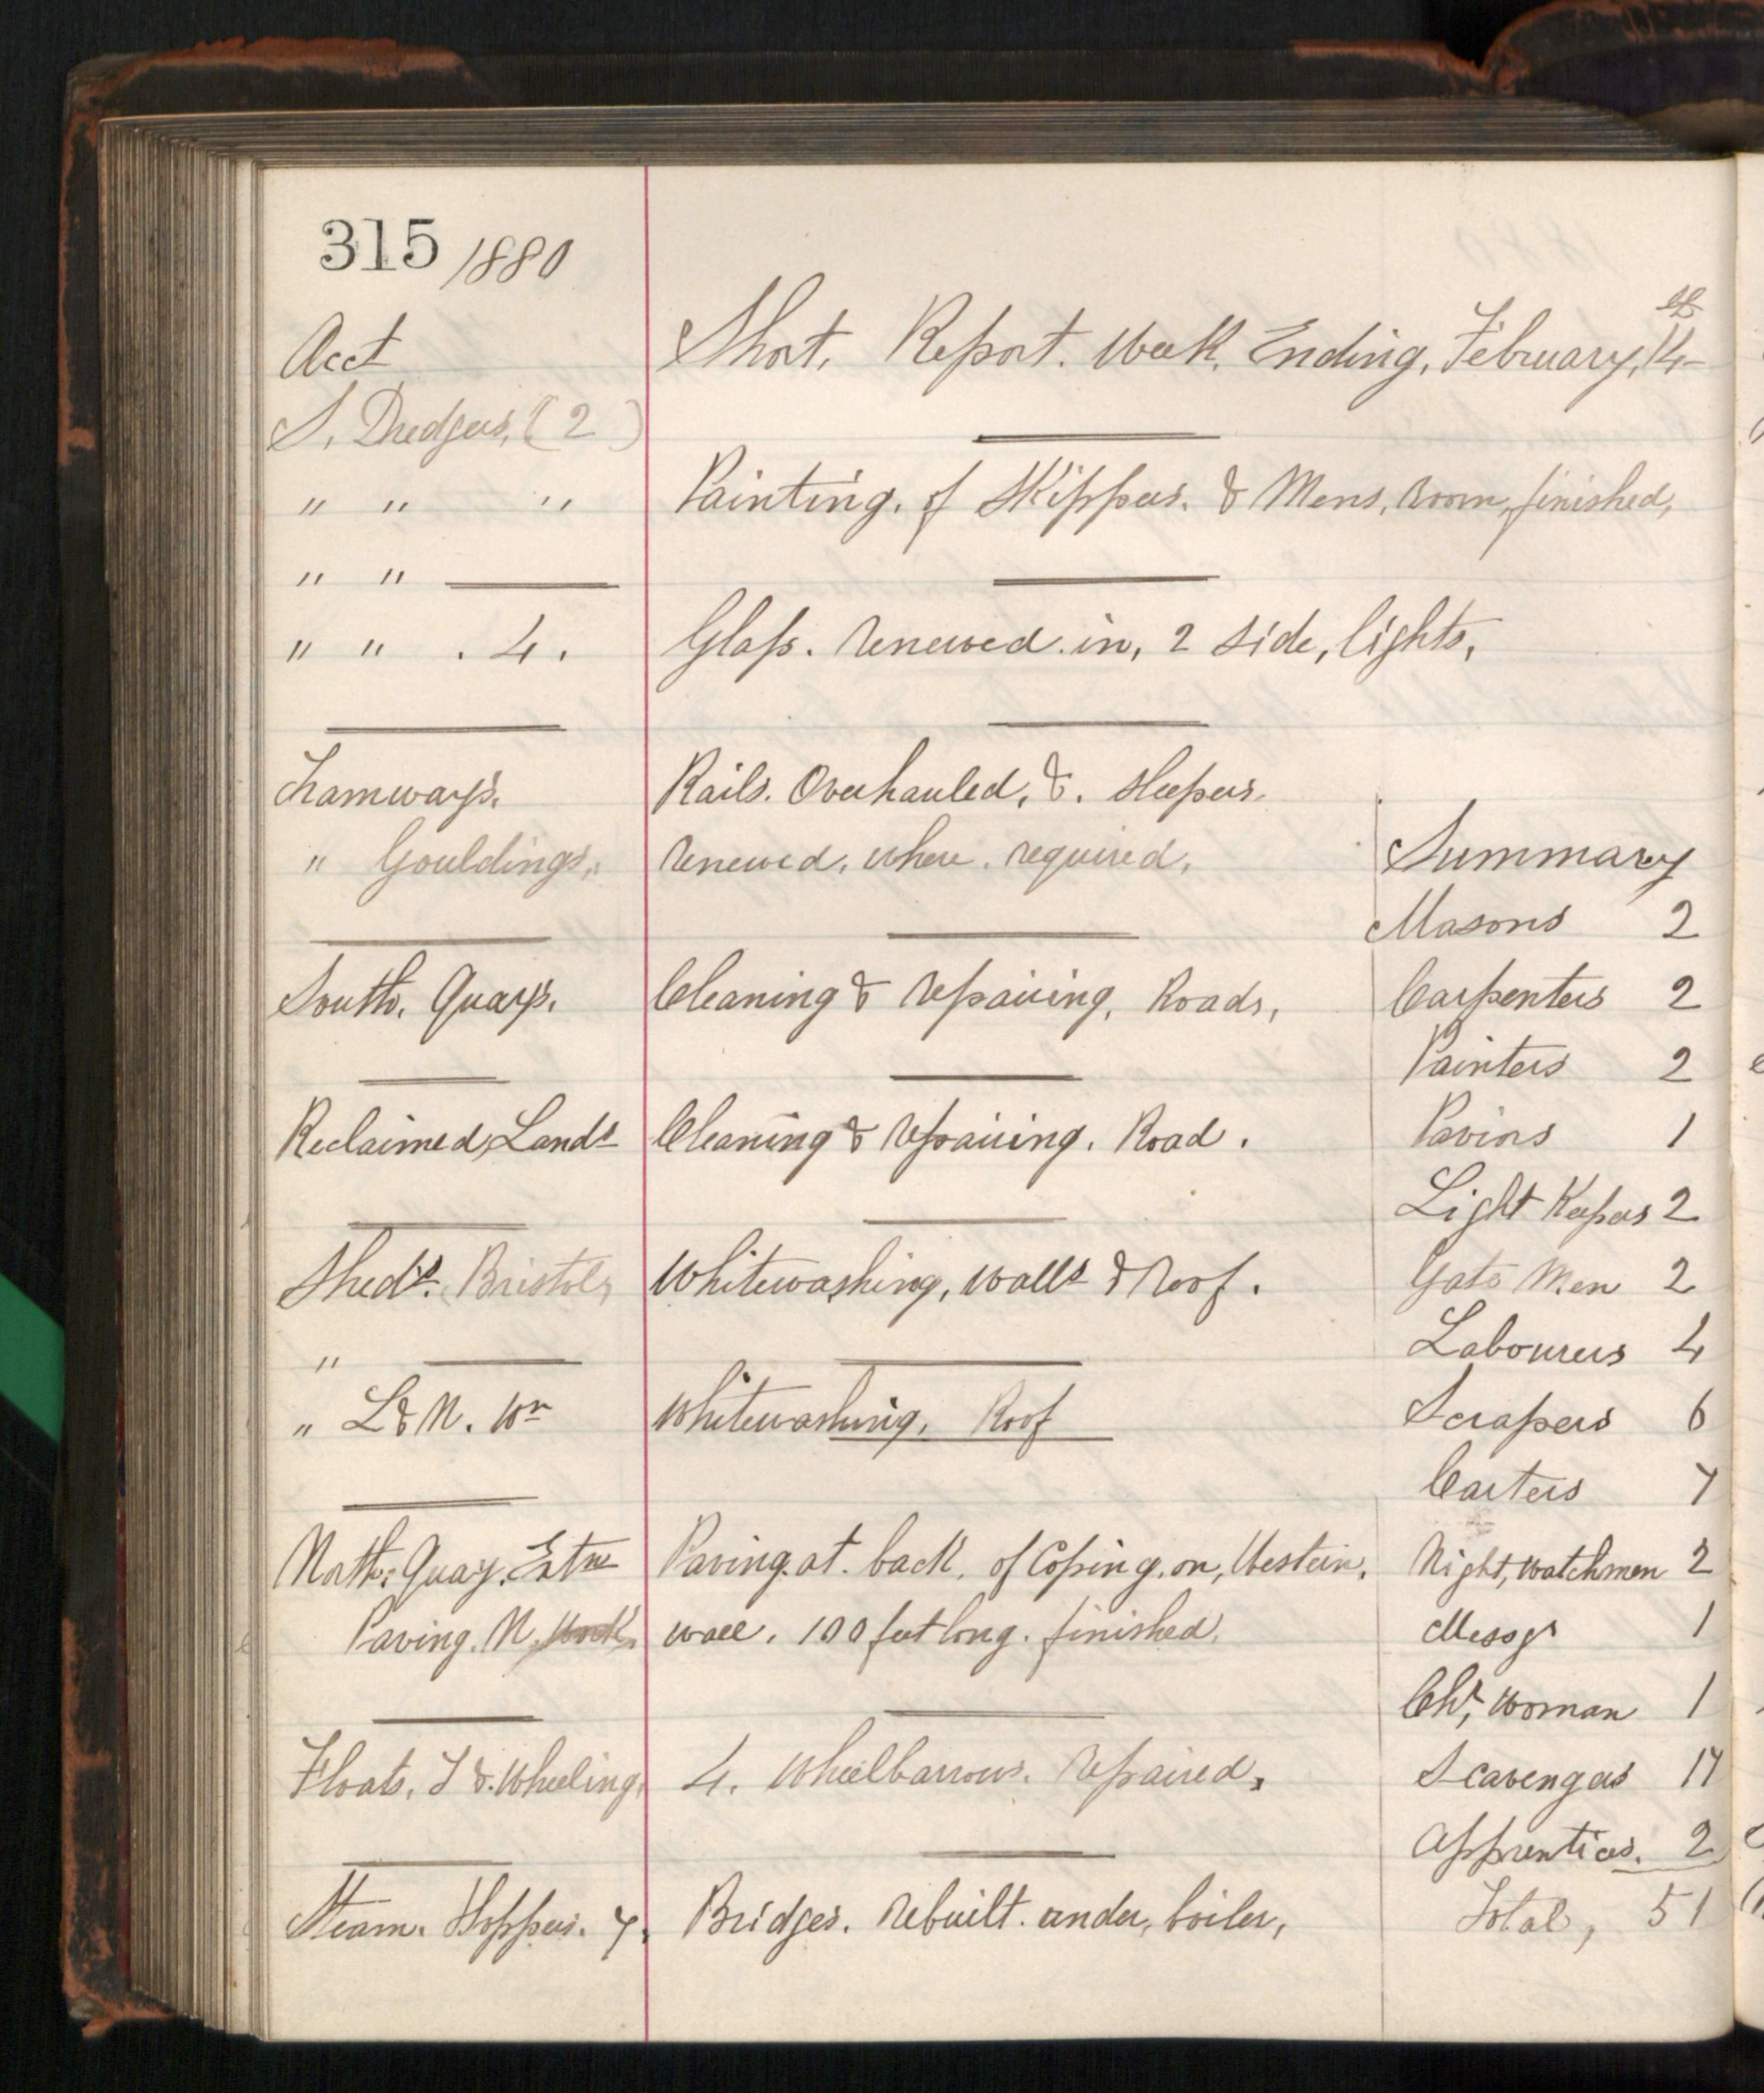 315 1880
Acct Short. Report. Week. Ending, February, 14th
S. Dredgers, (2)
" " " Painting. of Skippers. & Mens, Room, finished,
" "
" " . 4. Glass. Renewed. in, 2 Side, lights,
Tramways. Rails. Overhauled, &. Sleepers.
" Gouldings, Renewed. where. required. Summary
Masons 2
South. Quays. Cleaning & Repairing, Roads, Carpenters 2
Painters 2
Reclaimed, Lands Cleaning & Repairing. Road. Paviors 1
Light Keepers 2
Sheds. Bristol, Whitewashing, walls & Roof. Gate Men 2
" Labourers 4
" L & N. Wn Whitewashing, Roof Scrapers 6
Carters 7
North. Quay. Extn Paving. at. back. of Coping. on, Western, Night, Watchmen 2
Paving. N. Work. wall. 100 feet long. finished. Messgr 1
Chr, Woman 1
Floats. T & Wheeling, 4. Wheelbarrows. Repaired, Scavengers 17
Apprentices. 2
Steam. Hopper. 7. Bridges. Rebuilt. under, boiler, Total, 51